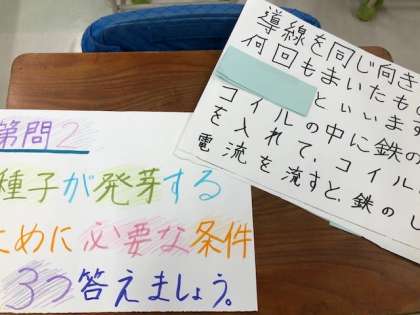 第問2
種子が発芽する
ために必要な条件
3つ答えましょう。
導線を同じ向き
何回もまいたも
といいます
コイルの中に鉄の
を入れて、コイル
電流を流すと、鉄のし